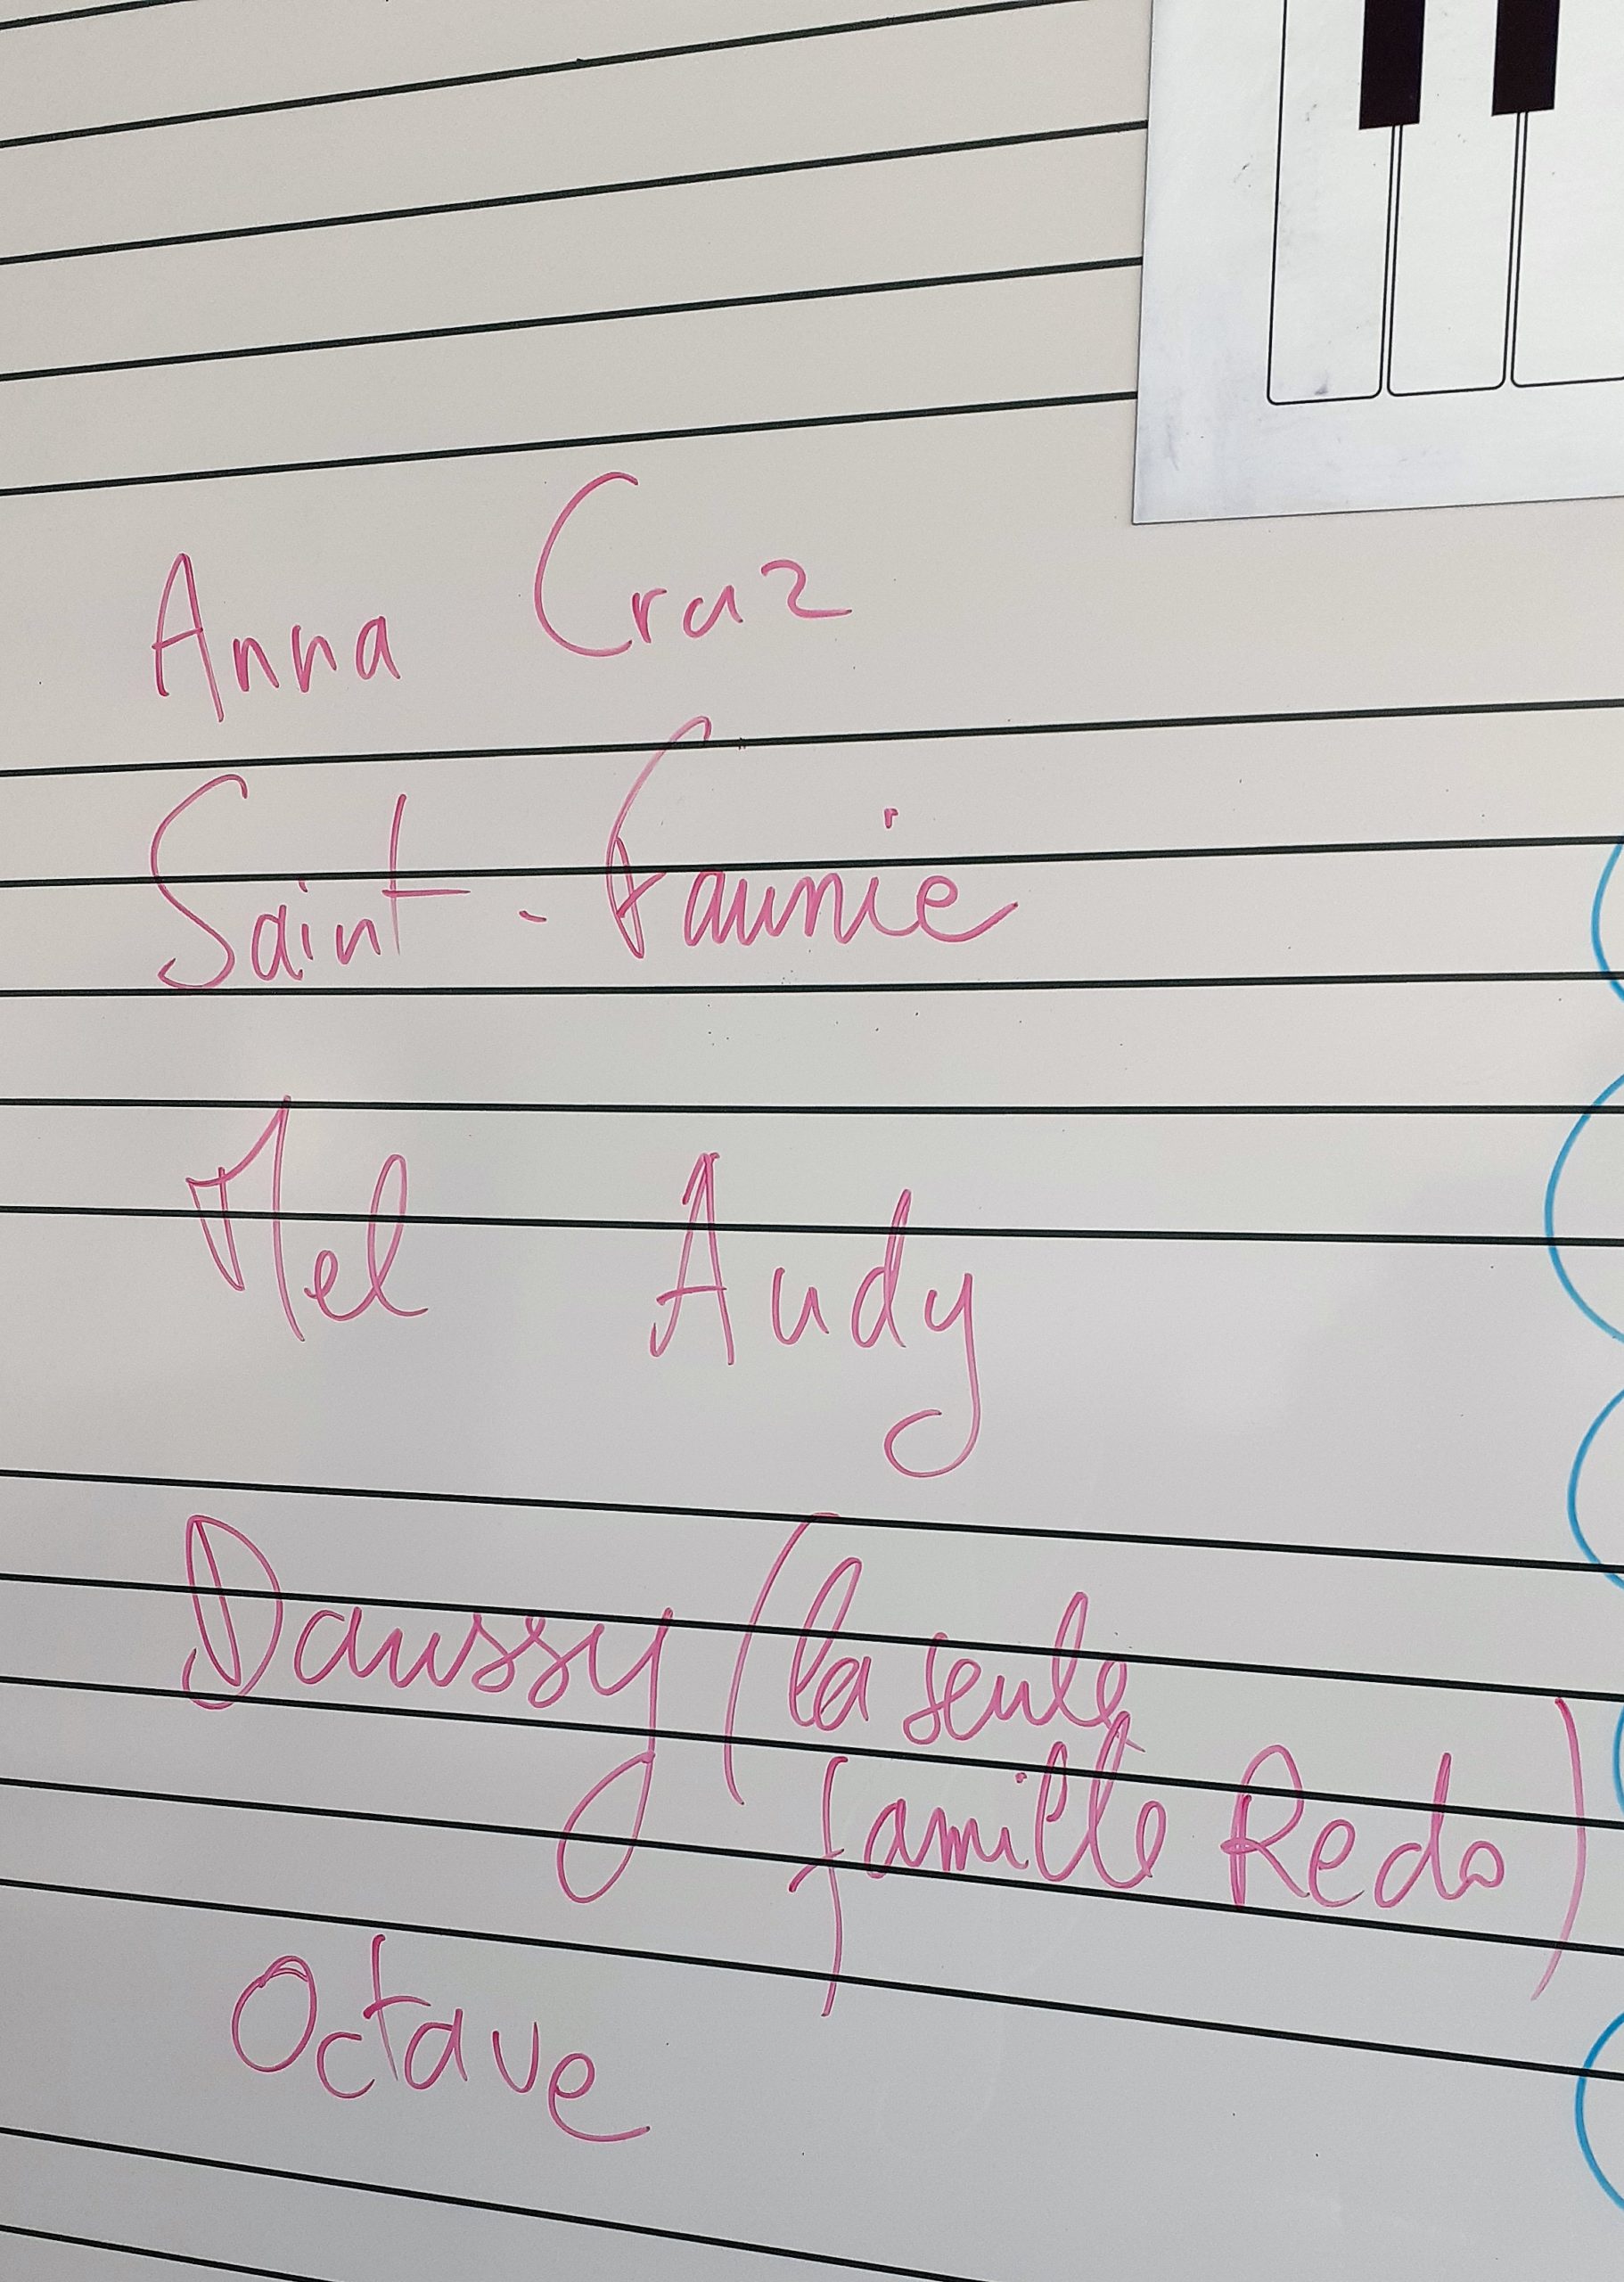 Anna Craz
Saint-Faunie
Mel Audy
Daussy (la seule
famille Redo)
Octave